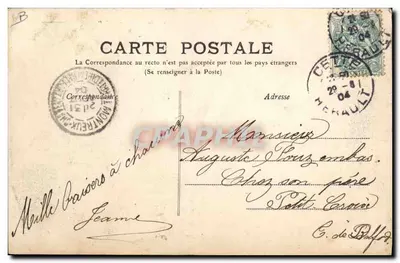 CARTE POSTALE
La Correspondance au recto n'est pas acceptée par tous les pays étrangers
(Se renseigner à la Poste)
Correspondance
Adresse
CETTE
29
04
HERAULT
MONTREUX
Mille baisers à chacun
Jeanne
Monsieur
Auguste
Chez son père
Petit Croix
T. de Belfort